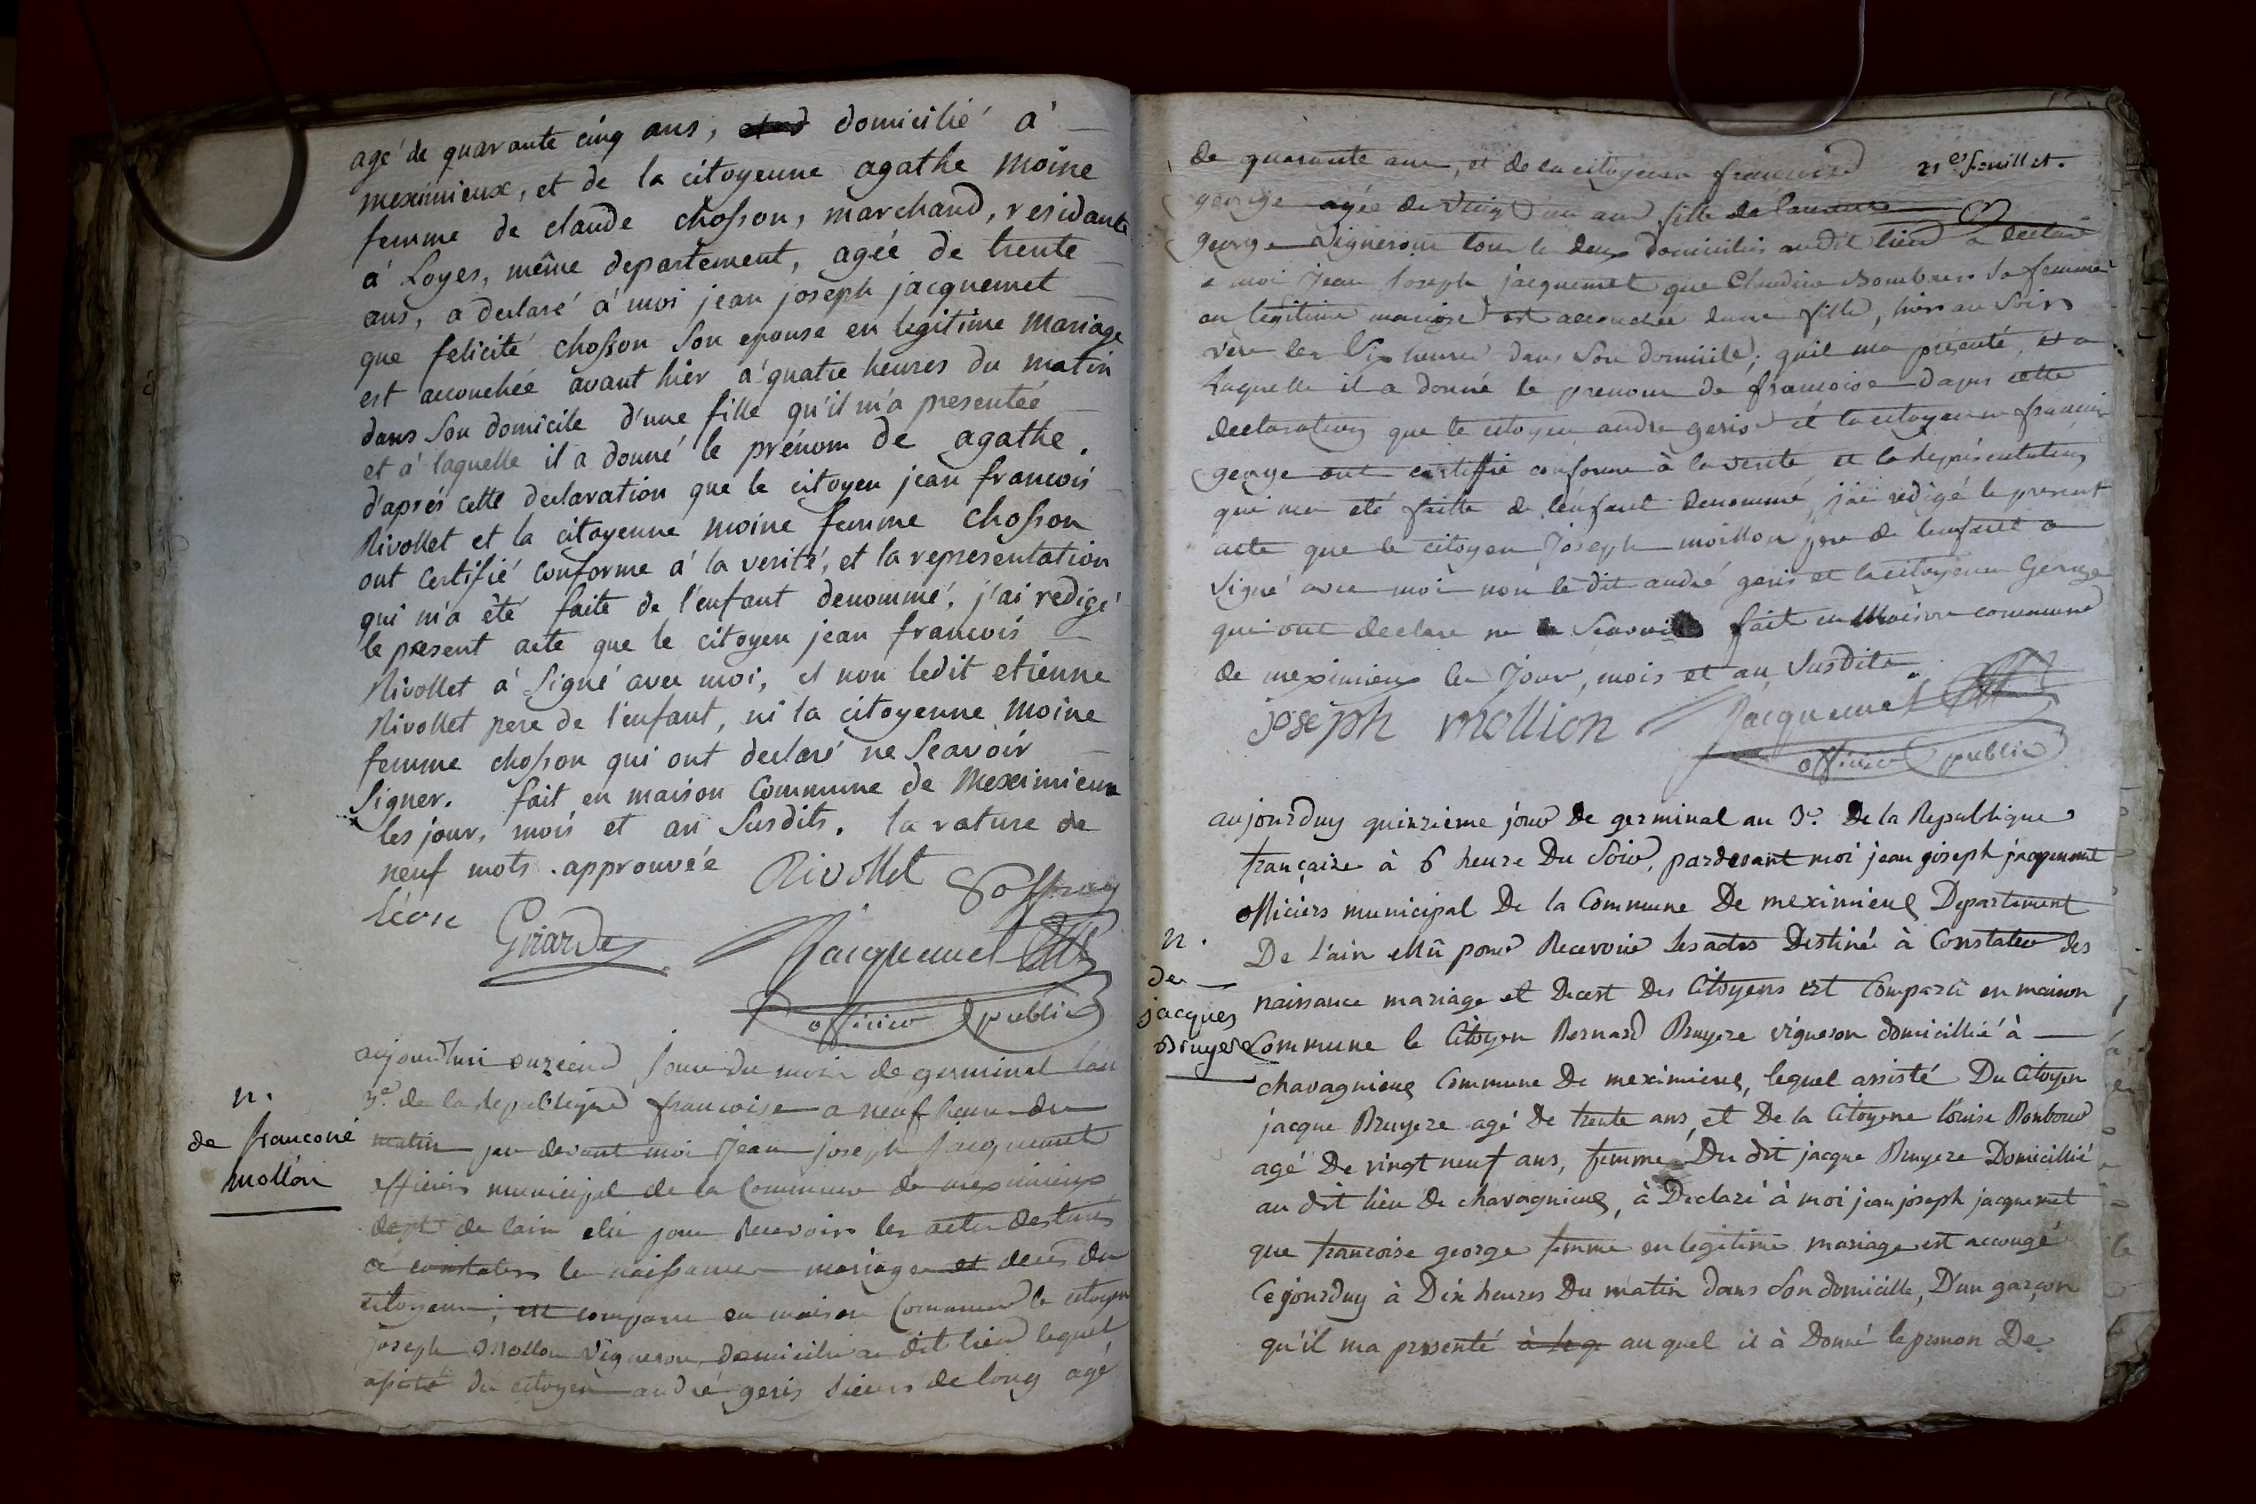 agé de quarante cinq ans, domicilié à
meximieux, et de la citoyenne agathe moine
femme de claude chosson, marchand, residante
à Loyes, même departement, agée de trente
ans, a declaré à moi jean joseph jacquemet
que felicité chosson son epouse en legitime mariage
est accouchée avant hier à quatre heures du matin
dans son domicile d'une fille qu'il m'a presentée
et à laquelle il a donné le prénom de agathe.
d'aprés cette declaration que le citoyen jean francois
Rivollet et la citoyenne moine femme chosson
ont certifié conforme à la verité, et la representation
qui m'a été faite de l'enfant denommé, j'ai redigé
le present acte que le citoyen jean francois
Rivollet à signé avec moi, et non ledit etienne
Rivollet pere de l'enfant, ni la citoyenne moine
femme chosson qui ont declaré ne scavoir
signer. fait en maison commune de Meximieux
les jour, mois et an susdits. la rature de
neuf mots approuvée Rivollet
Girarde
Jacquemet
officier public
n.
de francoise
mollon
aujourdhui onzieme jour du mois de germinal l'an
3e de la republique francoise a neuf heures du
matin par devant moi jean joseph jacquemet
officier municipal de la commune de meximieux
dept de lain elu pour recevoir les actes destinés
a constater les naissances mariages et deces des
citoyens, est comparu en maison commune le citoyen
joseph mollon vigneron domicilié au dit lieu lequel
assisté du citoyen andré geris sieur de long agé
21e feuillet.
de quarante ans, et de la citoyenne francoise
george agée de vingt un ans fille de
george vigneron tous les deux domiciliés audit lieu a declaré
a moi jean joseph jacquemet que Claudine sa femme
en legitime mariage est accouchée d'une fille, hier au soir
vers les six heures dans son domicile; quil ma présenté, et a
laquelle il a donné le prenom de francoise dapres cette
declaration que le citoyen andre geris et la citoyenne francoise
george ont certiffié conforme à la verité et la représentation
qui ma eté faitte de l'enfant denommé, j'ai redigé le present
acte que le citoyen joseph moillon pere de lenfant a
signé avec moi non le dit andré geris et la citoyenne George
qui ont declare ne scavoir fait en Maison commune
de meximieux les jour, mois et an susdits
joseph mollion Jacquemet
officier public
n.
de
jacques
Bruyere
aujourduy quinzieme jour de germinal an 3e. de la Republique
française à 6 heure du soir, pardevant moi jean joseph jacquemet
officiers municipal de la Commune de meximieux Departement
De l'ain ellû pour Recevoir les actes destiné à Constater des
naissance mariage et decest des Citoyens est Comparu en maison
Commune le Citoyen Bernard Bruyere vigneron domicillié à
chavagnieux Commune de meximieux, lequel assisté Du Citoyen
jacque Bruyere agé de trente ans, et De la Citoyene Louise Bonbour
agé De vingt neuf ans, femme Du dit jacque Bruyere Domicillié
au dit lieu de chavagnieux, à Declaré à moi jean joseph jacquemet
que francoise george femme en legitime mariage est accougé
Cejourduy à Dix heures Du matin dans son domicille, D'un garçon
qu'il ma presenté au quel il à Donné le prenon De